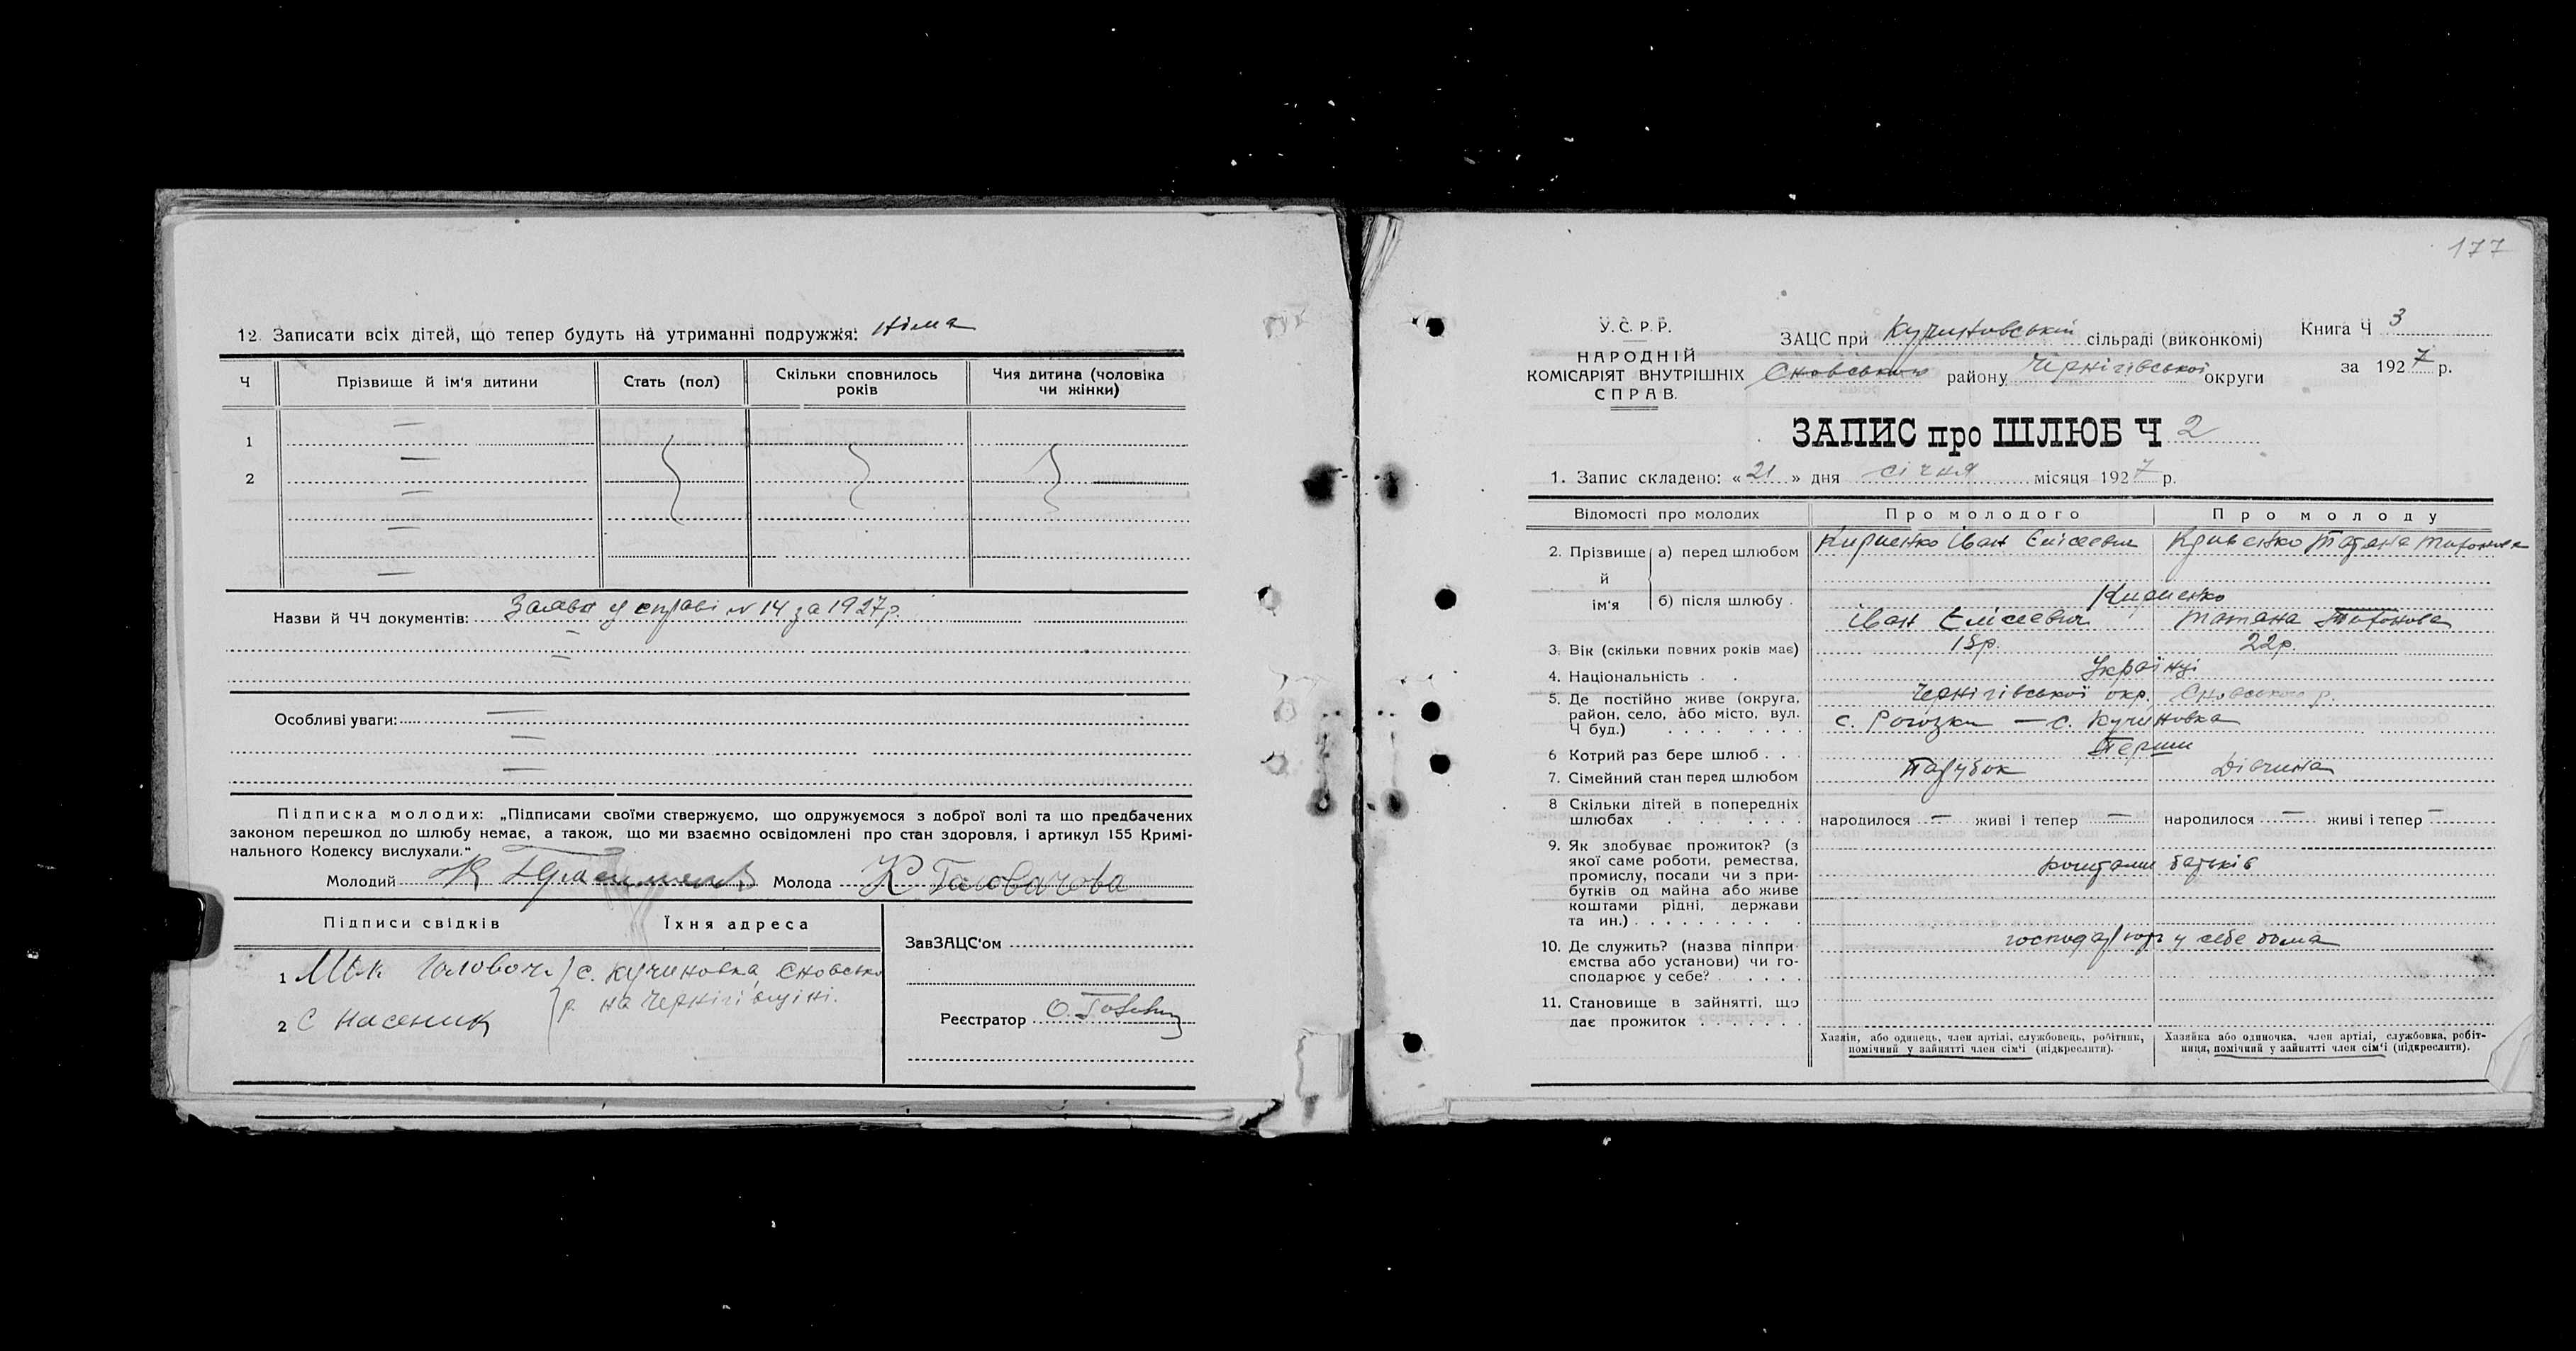 12. Записати всіх дітей, що тепер будуть на утриманні подружжя: Німа
Ч Прізвище й ім'я дитини Стать (пол) Скільки сповнилось років Чия дитина (чоловіка чи жінки)
1
2
Назви й ЧЧ документів: Заява у справі № 14 за 1927 р.
Особливі уваги:
Підписка молодих: „Підписами своїми ствержуємо, що одружуємося з доброї волі та що предбачених
законом перешкод до шлюбу немає, а також, що ми взаємно освідомлені про стан здоровля, і артикул 155 Кримі-
нального Кодексу вислухали."
Молодий Молода К Головачова
Підписи свідків Їхня адреса
1 с. Кучиновка, Сновсько
р. на Чернігівщіні.
2 С Насеник
ЗавЗАЦС'ом
Реєстратор О.
177
У. С. Р. Р.
НАРОДНІЙ
КОМІСАРІЯТ ВНУТРІШНІХ
СПРАВ.
ЗАЦС при Кучиновській сільраді (виконкомі)
Сновського району Чернігівської округи
Книга Ч 3
за 1927 р.
ЗАПИС про ШЛЮБ Ч 2
1. Запис складено: « 21 » дня січня місяця 1927 р.
Відомості про молодих Про молодого Про молоду
2. Прізвище й ім'я а) перед шлюбом Кириенко Іван Єлісеевич Кривенко Татяна Тихоновна
б) після шлюбу Кириенко
Іван Єлісеевич Татяна Тихонова
3. Вік (скільки повних років має) 18р. 22р.
4. Національність Українці
5. Де постійно живе (округа, Чернігівської окр. Сновського р.
район, село, або місто, вул. с. Рогозки — с. Кучиновка
Ч буд.)
6 Котрий раз бере шлюб Перши
7. Сімейний стан перед шлюбом Парубок Дівчина
8 Скільки дітей в попередніх
шлюбах народилося — живі і тепер — народилося — живі і тепер —
9. Як здобуває прожиток? (з
якої саме роботи, ремества, коштами батьків
промислу, посади чи з при-
бутків од майна або живе
коштами рідні, держави
та ин.)
10. Де служить? (назва підпри- господарюр у себе дома
ємства або установи) чи го-
сподарює у себе?
11. Становище в зайнятті, що
дає прожиток
Хазяїн, або одинець, член артілі, службовець, робітник,
помічний у зайнятті член сім'ї (підкреслити).
Хазяйка або одиночка, член артілі, службовка, робіт-
ниця, помічний у зайнятті член сім'ї (підкреслити).